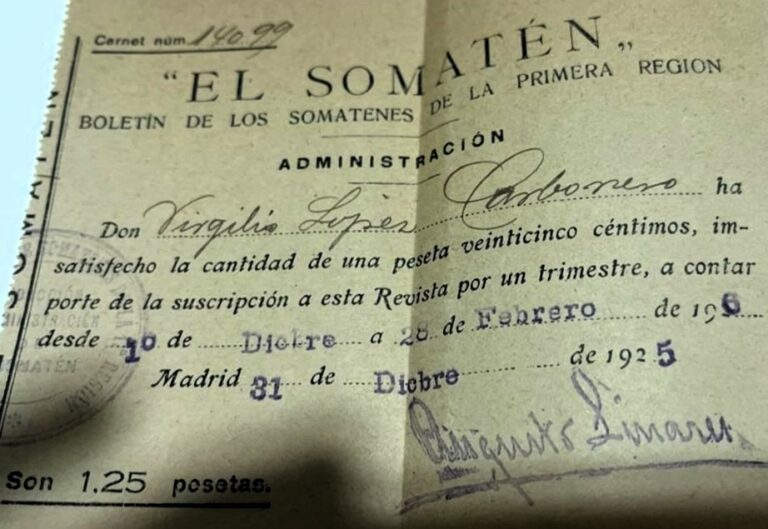 Carnet núm. 14099
"EL SOMATÉN„
BOLETÍN DE LOS SOMATENES DE LA PRIMERA REGION
ADMINISTRACIÓN
Don Virgilio López Carbonero ha
satisfecho la cantidad de una peseta veinticinco céntimos, im-
porte de la suscripción a esta Revista por un trimestre, a contar
desde 1º de Dicbre a 28 de Febrero de 1926
Madrid 31 de Dicbre de 1925
Augusto Linares
Son 1.25 pesetas.